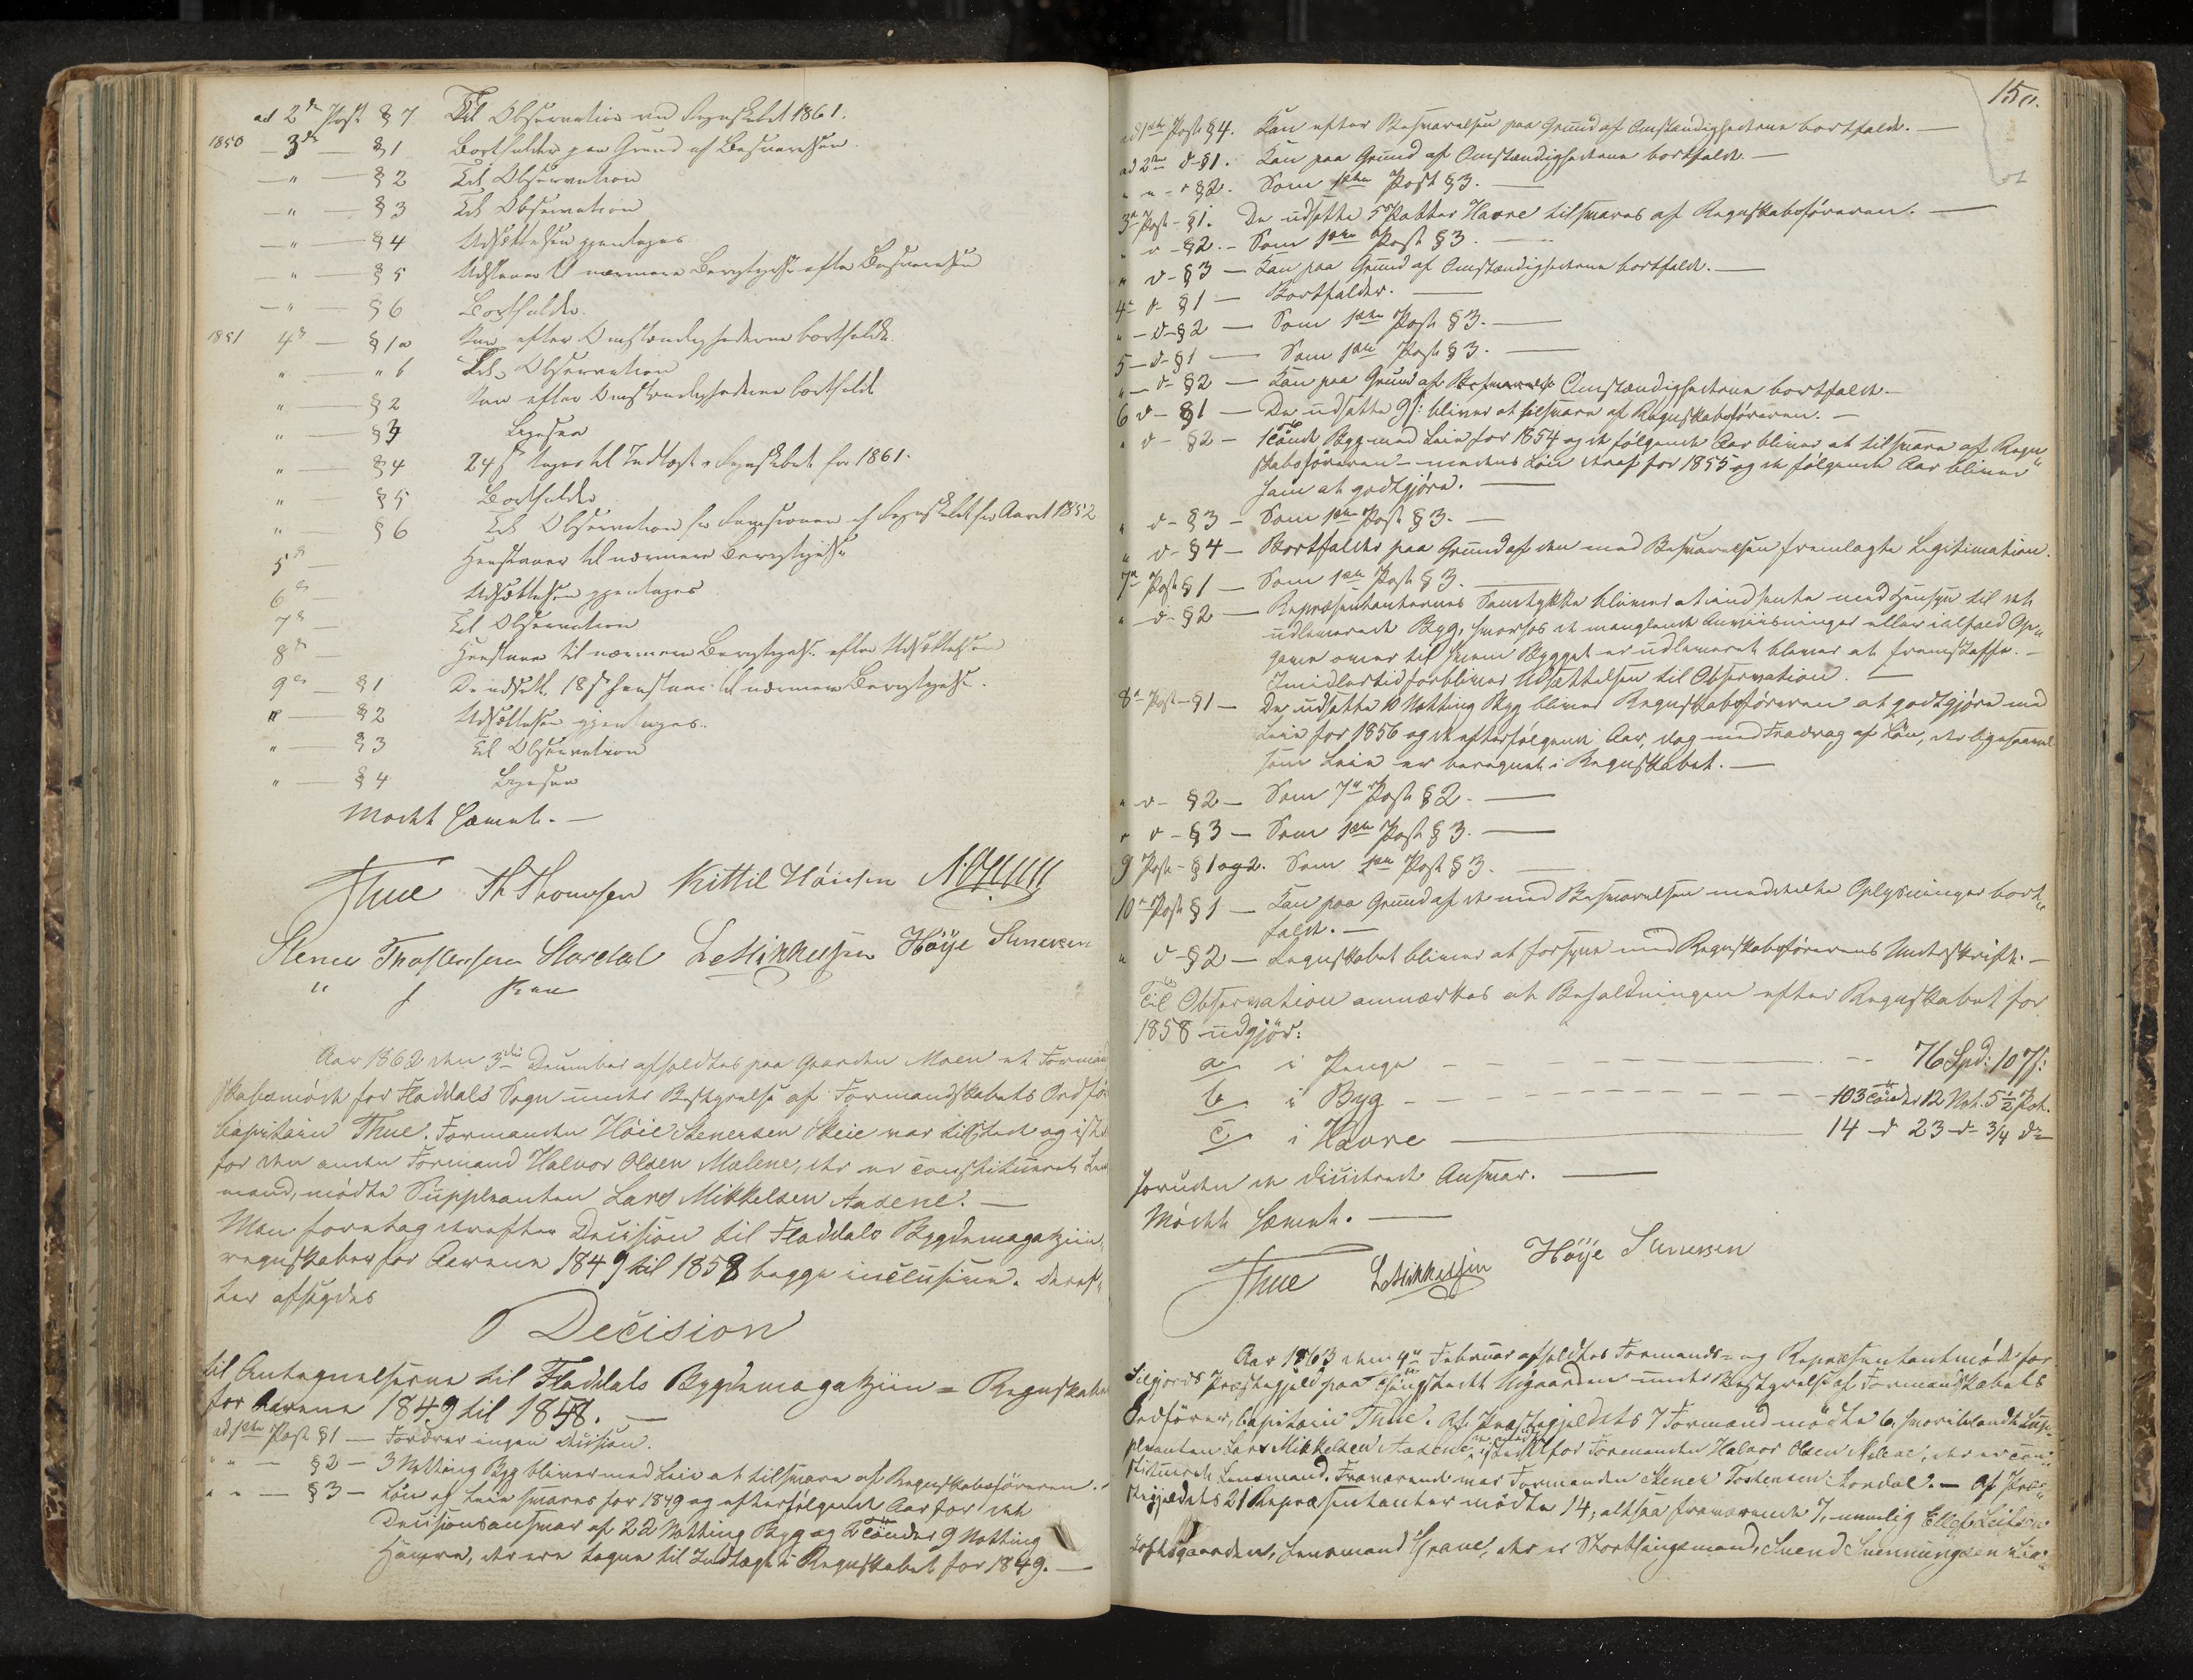 ad 2den Post § 7 Til Observation ved Regnskabet 1861.
1850 — 3die — § 1 Bortfalder paa Grund af Besvarelsen
— " — § 2 Til Observation
— " — § 3 Til Observation
— " — § 4 Udsættelsen gjentages
— " — § 5 Udstaaer til nærmere Berigtigelse efter Besvarelsen
— " — § 6 Bortfalder.
1851 4de — § 1 a Kan efter Omstændighederne bortfalde.
" — " b Til Observation
" — § 2 Kan efter Omstændighederne bortfalde
" — § 3 Ligesaa
" — § 4 24 s tages til Indtægt i Regnskabet for 1861.
" — § 5 Bortfalder
" — § 6 Til Observation for Revisionen af Regnskabet for Aaret 1852
5te — Henstaaer til nærmere Berigtigelse
6te — Udsættelsen gjentages
7de — Til Observation
8de — Henstaaer til nærmere Berigtigelse efter Udsættelsen
9de — § 1 De udsatte 18 s henstaaer til nærmere Berigtigelse.
" — § 2 Udsættelsen gjentages.
" — § 3 Til Observation
" — § 4 Ligesaa
Mødet hævet. —
Thue Th Thomsen Kittil Høiesen
Stener Trostensen Stordal L Mikkelsen Höye Stenersen
Aar 1862 den 3die December afholdtes paa Gaarden Moen et Formand
skabsmöde for Fladdals Sogn under Bestyrelse af Formandskabets Ordfö
Capitain Thue. Formanden Höie Stenersen Skeie var tilstede og iste
for den anden Formand Halvor Olsen Mælene, der er constitueret Len
mand, mödte Suppleanten Lars Mikkelsen Aasene. —
Man foretog derefter Decision til Fladdals Bygdemagaziin„
regnskaber for Aarene 1849 til 1858 begge inclusive. Deref„
ter afsagdes
Decision
til Antegnelserne til Fladdals Bygdemagaziin = Regnskaber
for Aarene 1849 til 1858. —
ad 1ste Post § 1 — Fordrer ingen Decision.
" " — § 2 — 3 Notting Byg bliver med Leie at tilsvare af Regnskabsföreren. —
" " — § 3 — Lön og Leie svares for 1849 og efterfölgende Aar for det
Decisionsansvar af 22 Notting Byg og 2 Tönder 9 Notting
Havre, der ere tagne til Indtægt i Regnskabet for 1849. —
150.
ad 1ste Post § 4. Kan efter Besvarelsen paa Grund af Omstændighederne bortfalde. —
ad 2den d § 1. Kan paa Grund af Omstændighederne bortfalde. —
" " - " § 2. Som 1ste Post § 3. —
3die Post - § 1. De udsatte 5 Potter Havre tilsvares af Regnskabsföreren. —
" d - § 2. - Som 1ste Post § 3. —
" d - § 3 — Kan paa Grund af Omstændighederne bortfalde. —
4de d - § 1 — Bortfalder. —
" — d - § 2 — Som 1ste Post § 3. —
5 — d - § 1 — Som 1ste Post § 3. —
" — d - § 2 — Kan paa Grund af Besvarelse Omstændighederne bortfalde —
6 d - § 1 — De udsatte 9 s: bliver at tilsvare af Regnskabsföreren. —
" d - § 2 — 1 Tönde Byg med Leie for 1854 og de fölgende Aar bliver at tilsvare af Regn„
skabsföreren — medens Lön deraf for 1855 og de fölgende Aar bliver
ham at godtgjöre. —
" d - § 3 — Som 1ste Post § 3. —
" d - § 4 — Bortfalder paa Grund af den med Besvarelsen fremlagte Legitimation.
7de Post § 1 — Som 1ste Post § 3. —
" — d - § 2 — Repræsentanternes Samtykke bliver at indhente med Hensyn til det
udleverede Byg, hvorhos de manglende Anviisninger eller ialfald Op„
gave over til hvem Bygget er udleveret bliver at fremskaffe. —
Imidlertid forbliver Udsættelsen til Observation. —
8de Post - § 1 — De udsatte 10 Notting Byg bliver Regnskabsföreren at godtgjöre med
Leie for 1856 og de efterfölgende Aar, dog med Fradrag af Lön, der ligesaavel
som Leie er beregnet i Regnskabet. —
" d - § 2 — Som 7de Post § 2. —
" d - § 3 — Som 1ste Post § 3. —
9 Post - § 1 og 2. Som 1ste Post § 3. —
10de Post § 1 — Kan paa Grund af de med Besvarelsen meddeelte Oplysninger bort„
falde. —
" d - § 2 — Regnskabet bliver at forsyne med Regnskabsförerens Underskrift. —
Til Observation anmærkes at Beholdningen efter Regnskabet for
1858 udgjör:
a i Penge — 76 Spd: 107 s:
b i Byg — 103 Tönder 12 Not. 5 1/2 Pot.
c i Havre — 14 — d 23 — d 3/4 do
foruden de deciderede Ansvar. —
Mödet hævet. —
Thue L Mikkelsen Höye Stenersen
Aar 1863 den 4de Februar afholdtes Formands- og Repræsentantmöde for
Siljords Præstegjeld paa Thingstedet Uppaarden under Bestyrelse af Formandskabets
Ordförer, Capitain Thue. Af Præstegjeldets 7 Formænd mödte 6, hvoriblandt Sup„
pleanten Lars Mikkelsen Aasene istedet for Formanden Halvor Olsen Mælene, der er con„
stitueret Lensmand. Fraværende var Formanden Stener Tostensen Stordal. — Af Præ„
stegjeldets 21 Repræsentanter mödte 14; altsaa fraværende 7, nemlig Ellef Leifsen
Loftsgaarden, Lensmand Grave, der er Storthingsmand, Svend Svennungsen